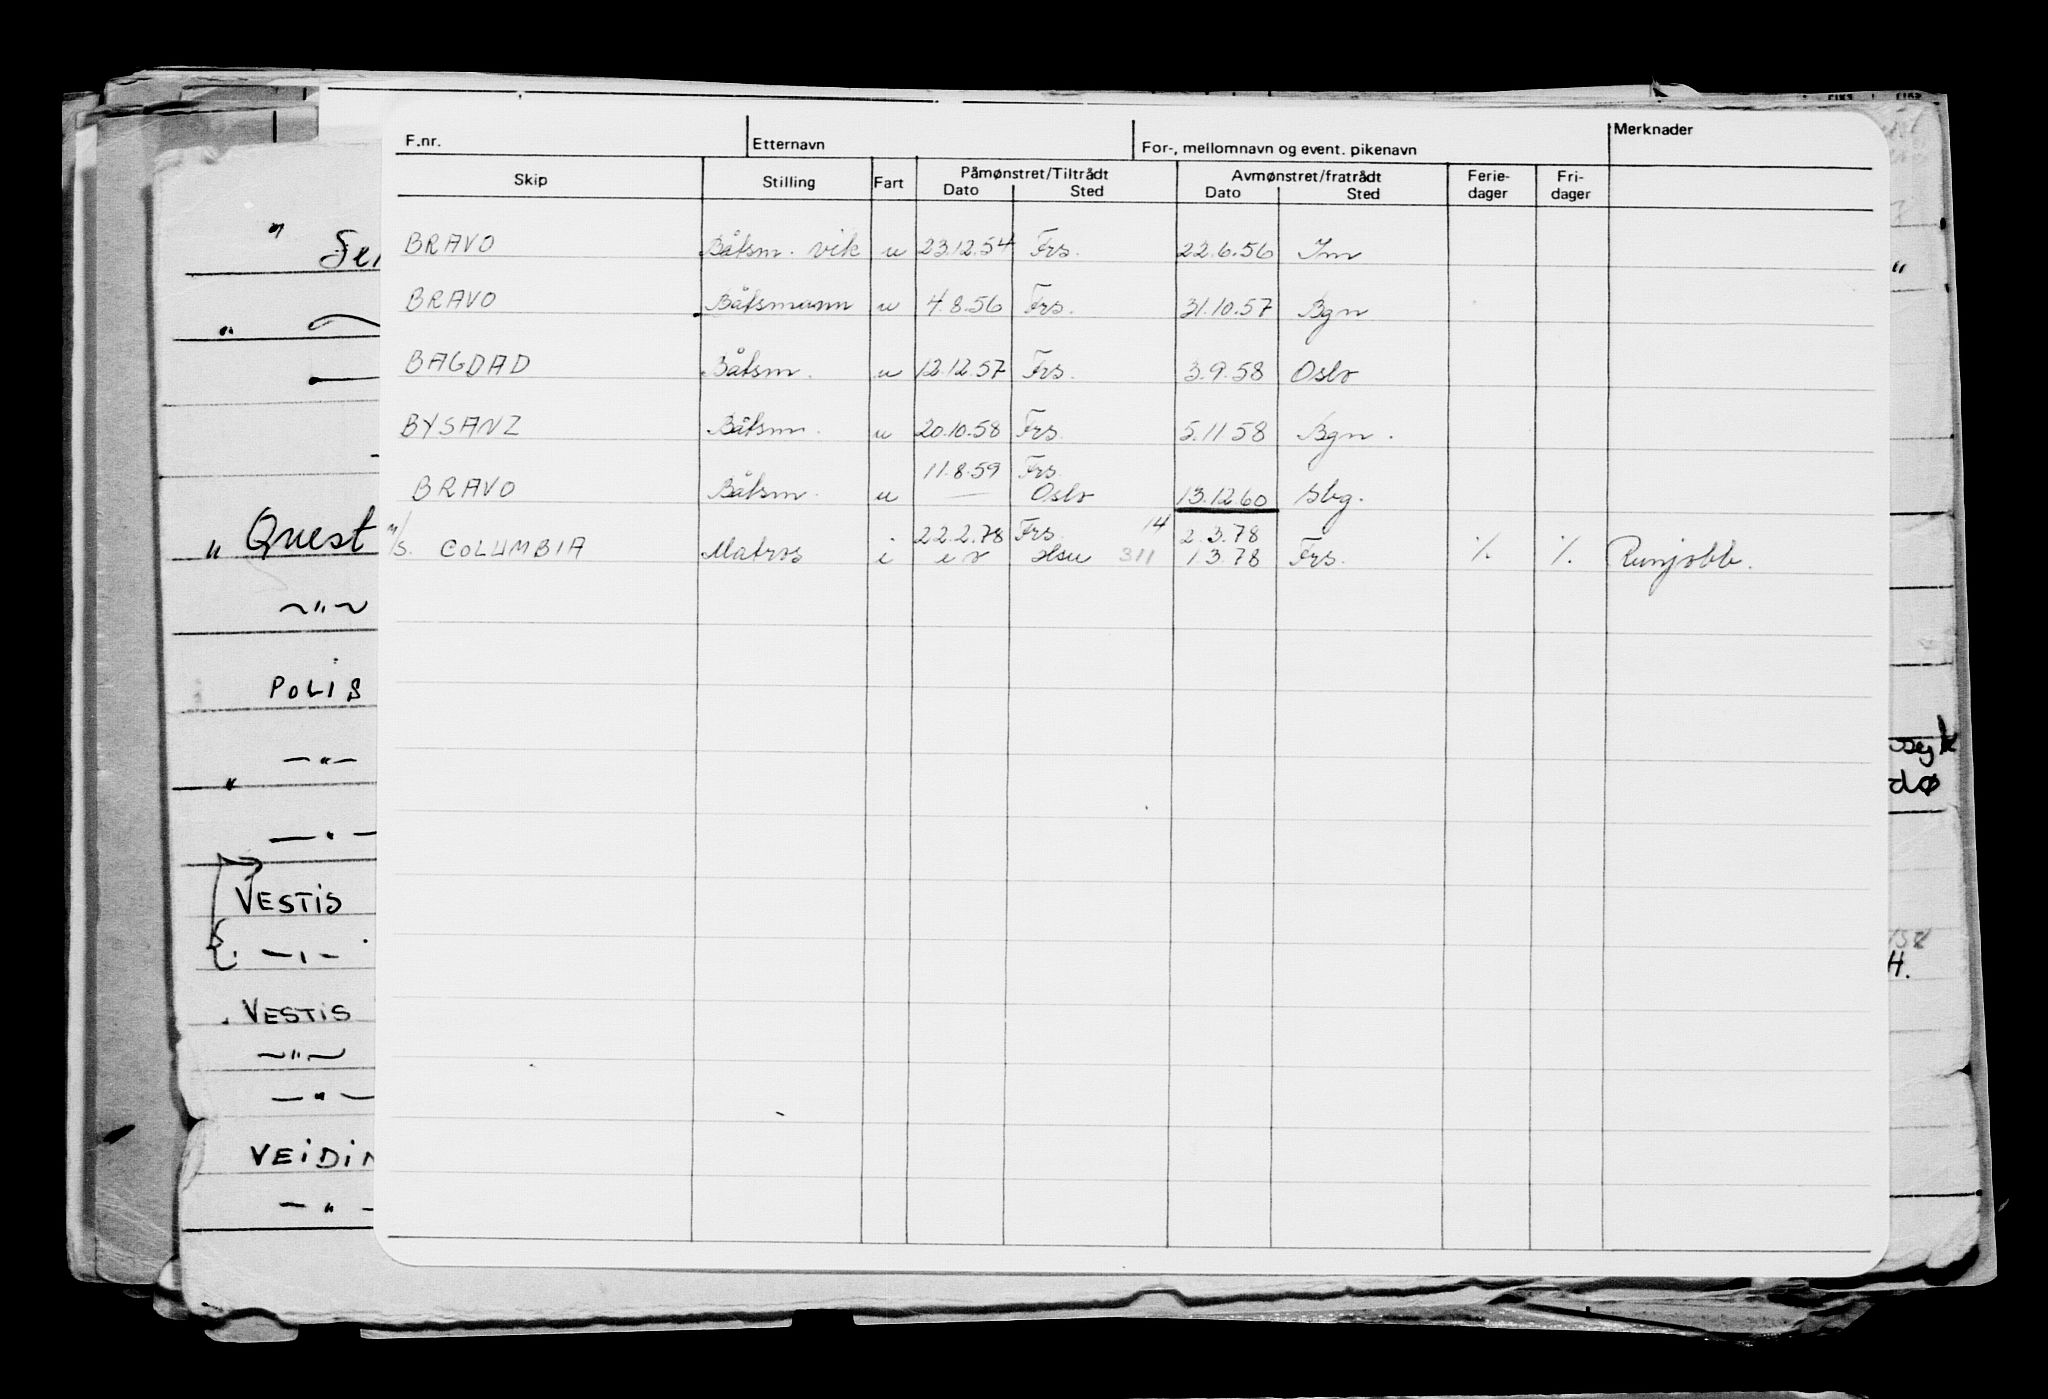 F.nr. Etternavn For-, mellomnavn og event. pikenavn Merknader
Skip Stilling Fart Påmønstret/Tiltrådt Avmønstret/fratrådt Ferie-dager Fri-dager
Dato Sted Dato Sted
BRAVO Båtsm. vik u 23.12.54 Frs. 22.6.56 Im
BRAVO Båtsmann u 4.8.56 Frs. 31.10.57 Bgn
BAGDAD Båtsm. u 12.12.57 Frs. 3.9.58 Oslo
BYSANZ Båtsm. u 20.10.58 Frs. 5.11 58 Bgn.
11.8.59 Frs.
BRAVO Båtsm. u — Oslo 13.12.60 Sbg.
22.2.78 Frs. 14 2.3.78
M/S. COLUMBIA Matros i Hsu 311 1.3.78 Frs. % %. Runjobb.
"
"
" Quest
~"~
POLIS
—"—
"
—"—
VESTIS
—"—
VESTIS
~"~
—"—
VEIDIN
—"—
"
dø
H.